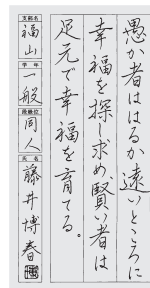 愚か者ははるか遠いところに
幸福を探し求め、賢い者は
足元で幸福を育てる。
支部名 福山
学年 一般
段級位 同人
氏名 藤井博春